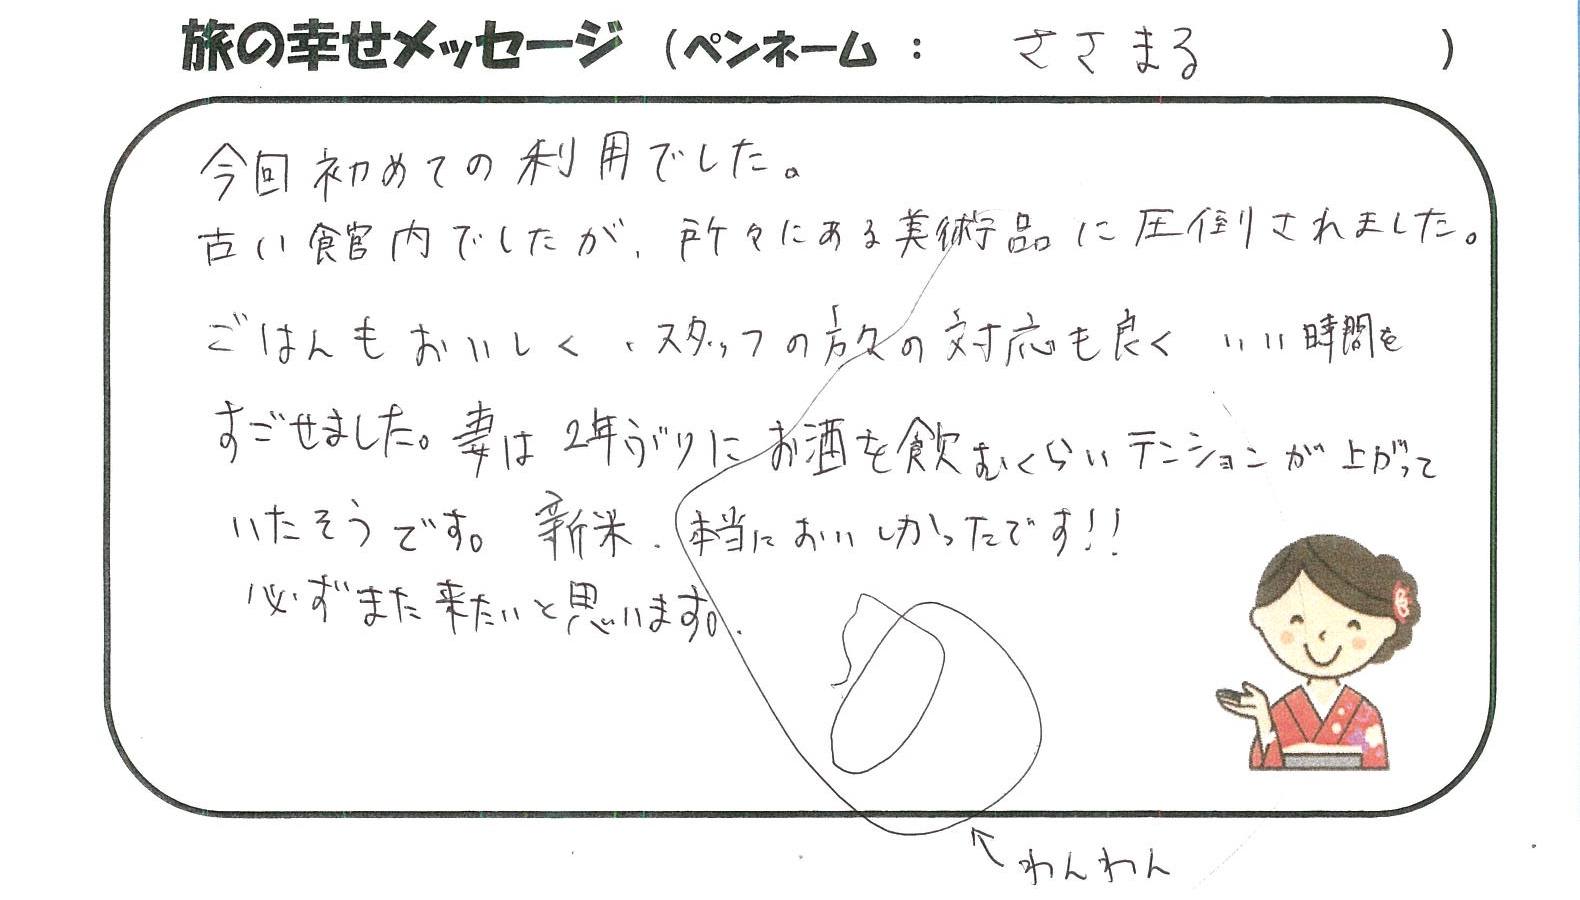 旅の幸せメッセージ（ペンネーム： ささまる ）
今回初めての利用でした。
古い館内でしたが、所々にある美術品に圧倒されました。
ごはんもおいしく、スタッフの方々の対応も良く いい時間を
すごせました。妻は2年ぶりにお酒を飲むくらいテンションが上がって
いたそうです。新米、本当においしかったです!!
必ずまた来たいと思います。
←わんわん